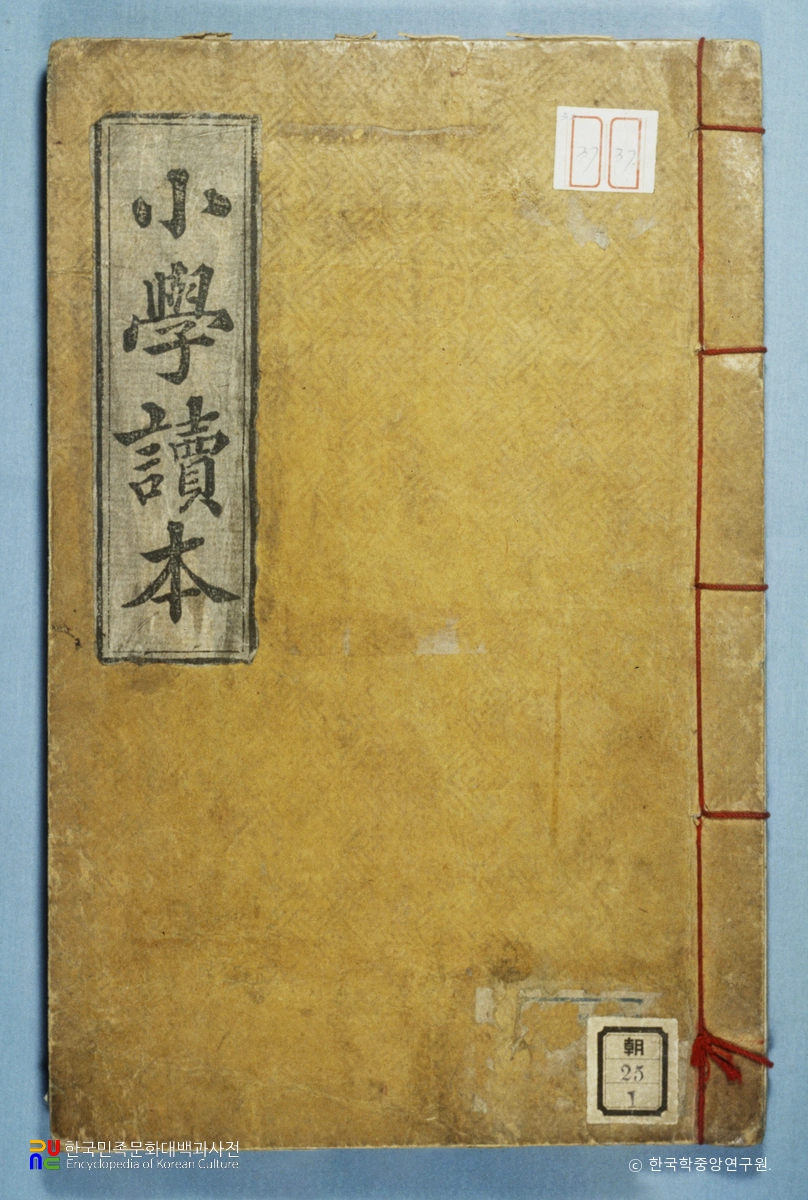 小學讀本
37 37
朝
25
1
한국민족문화대백과사전
Encyclopedia of Korean Culture
© 한국학중앙연구원.